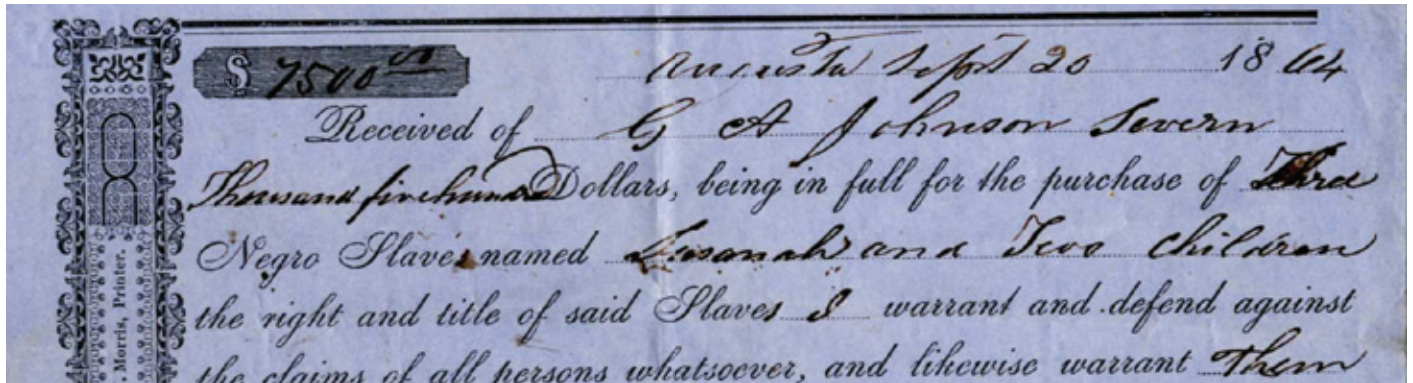 $ 7500 00
Augusta Sept 20 1864
Received of G A Johnson Severn
Thousand five hundred Dollars, being in full for the purchase of Three
Negro Slaves named Susanah and Two Children
the right and title of said Slaves I warrant and defend against
the claims of all persons whatsoever, and likewise warrant Them
. Morris, Printer.